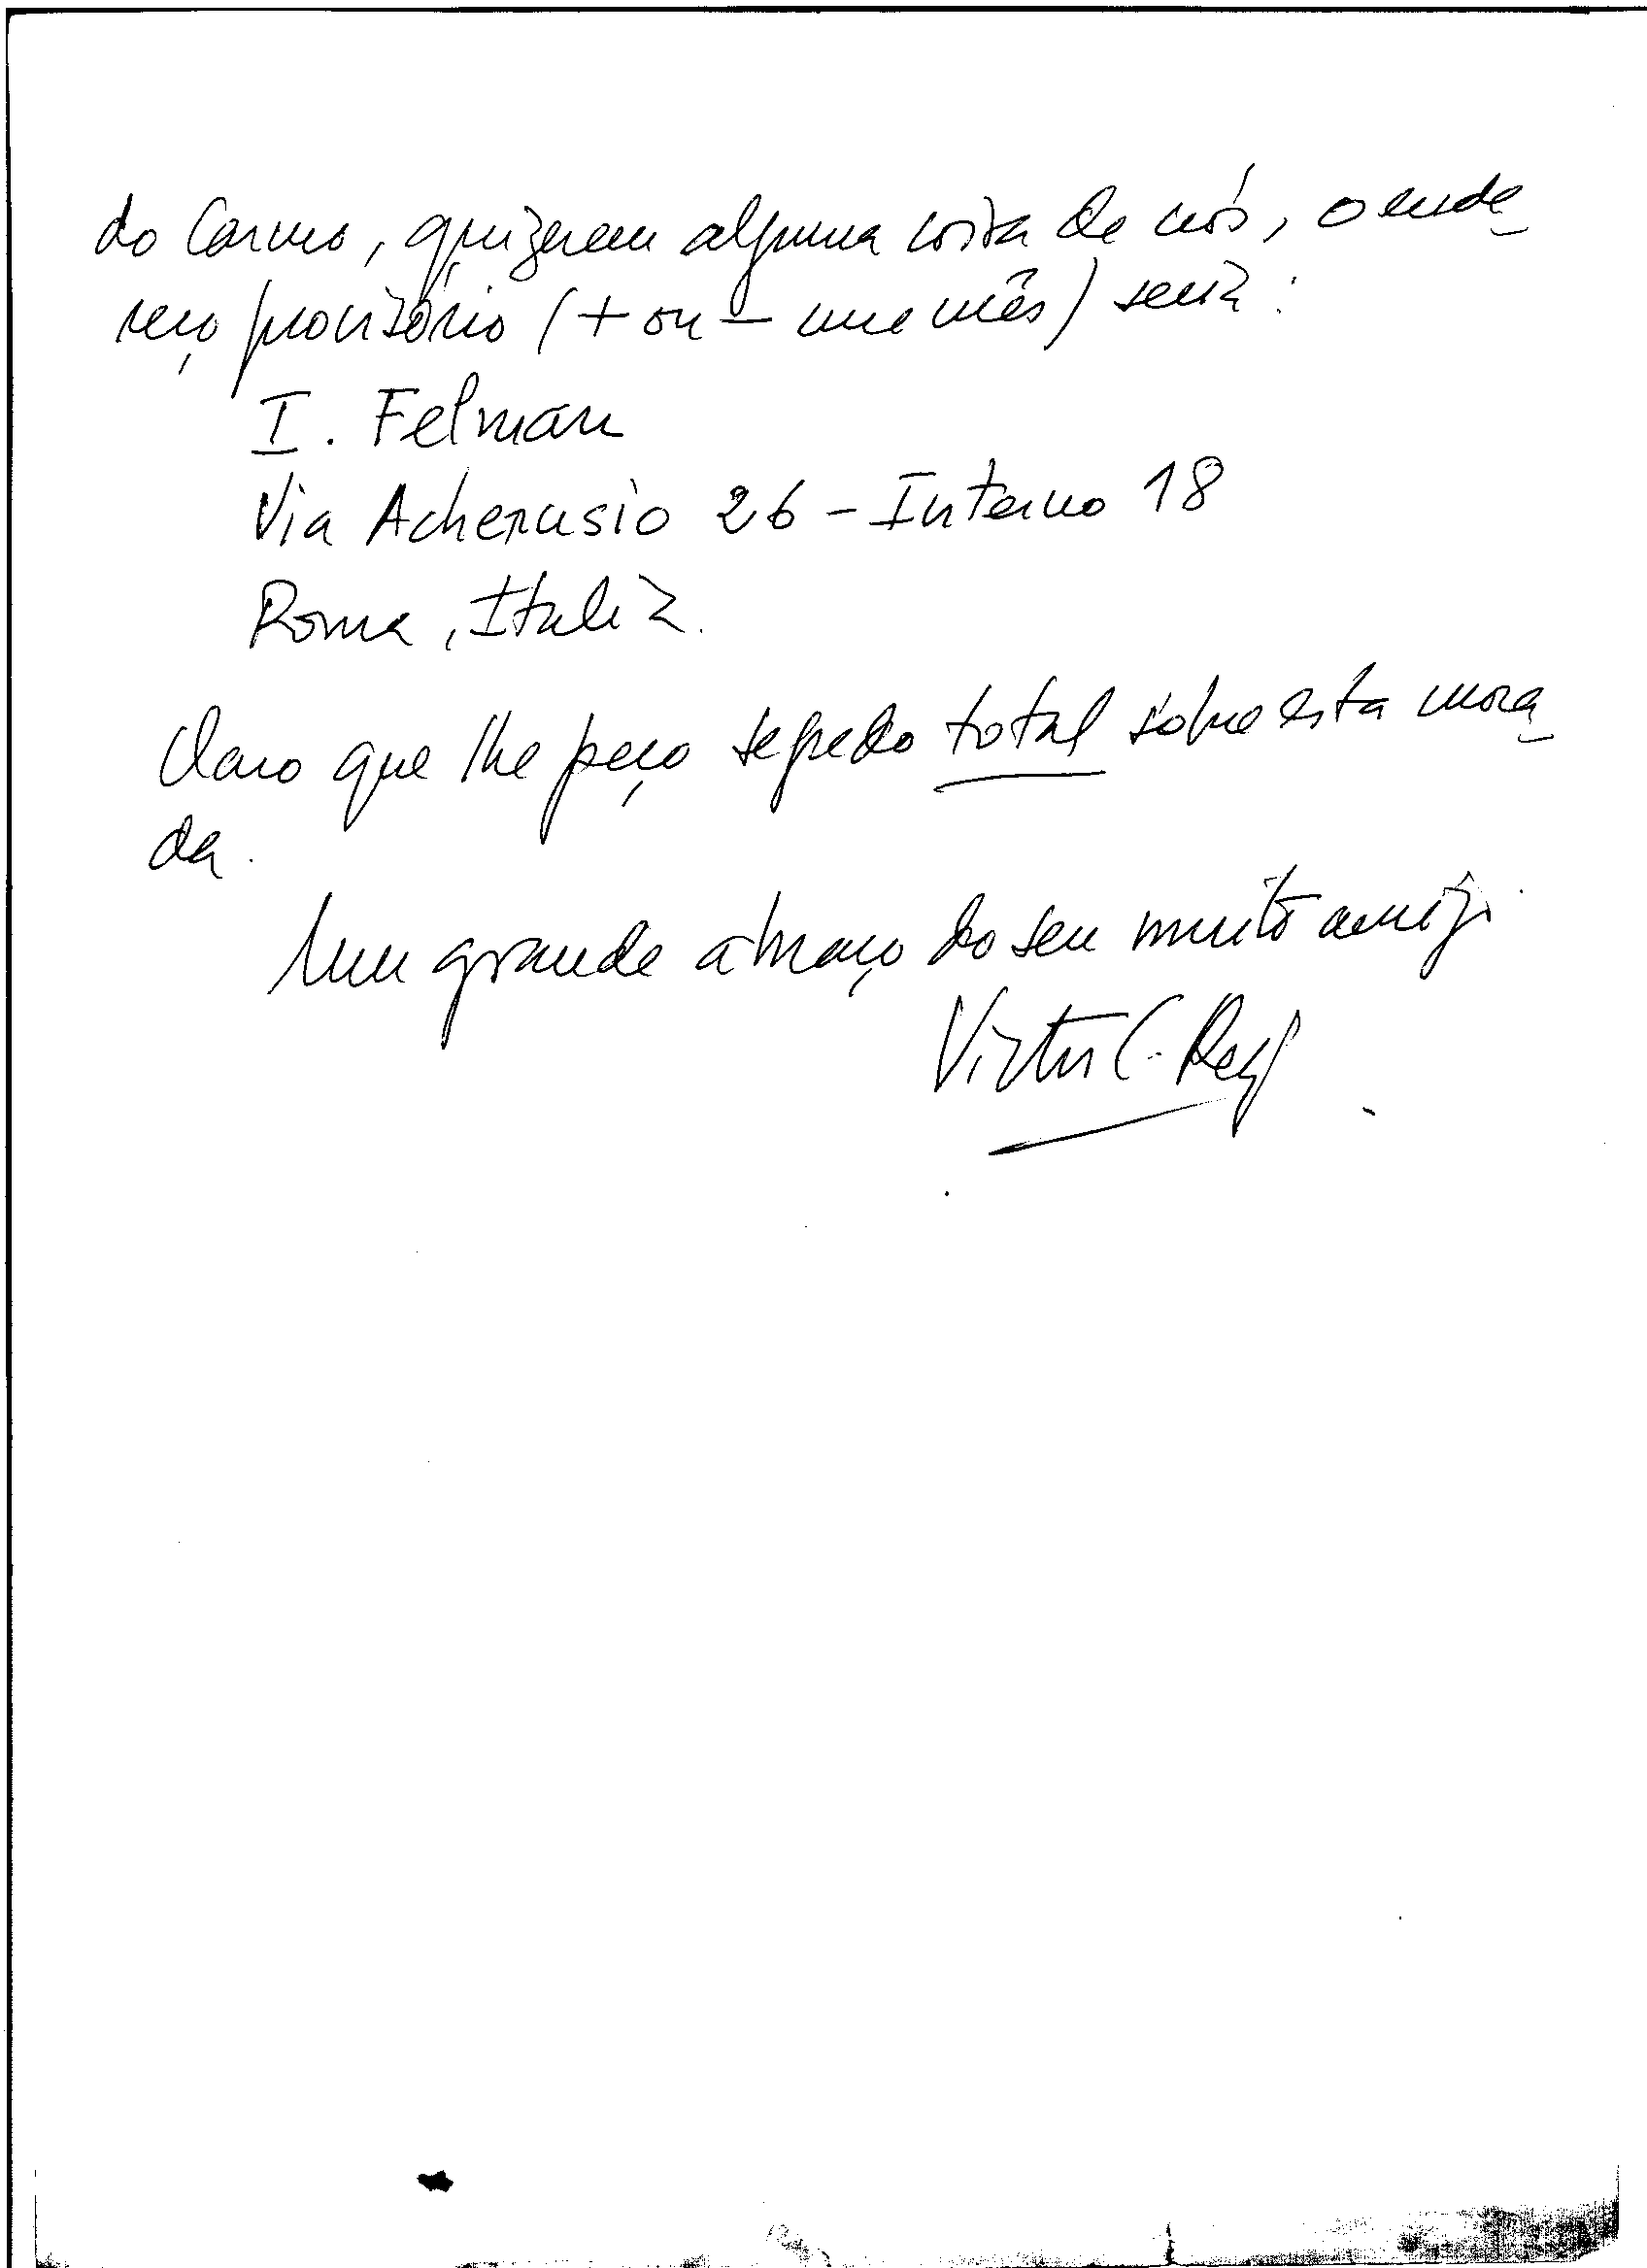 do Carmo, quizerem alguma coisa de nós, o ende
reço provisório (+ ou - um mês) será:
I. Felman
Via Acherusio 26 - Interno 18
Roma, Italia.
Claro que lhe peço segredo total sobre esta mora
da.
Um grande abraço do seu muito amigo
C.